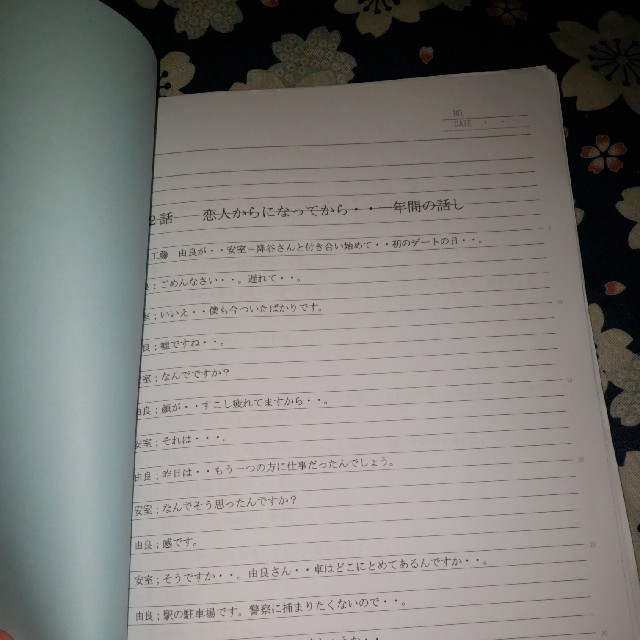 NO.
DATE ・ ・
2話 恋人からになってから・・一年間の話し
工藤 由良が・・安室=降谷さんと付き合い始めて・・初のデートの日・・。
良;ごめんなさい・・。遅れて・・。
室;いいえ・・僕も今ついたばかりです。
良;嘘ですね・・。
室;なんでですか?
由良;顔が・・すこし疲れてますから・・。
安室;それは・・・。
由良;昨日は・・もう一つの方に仕事だったんでしょう。
安室;なんでそう思ったんですか?
由良;感です。
安室;そうですか・・。由良さん・・車はどこにとめてあるんですか・・。
由良;駅の駐車場です。警察に捕まりたくないので・・。